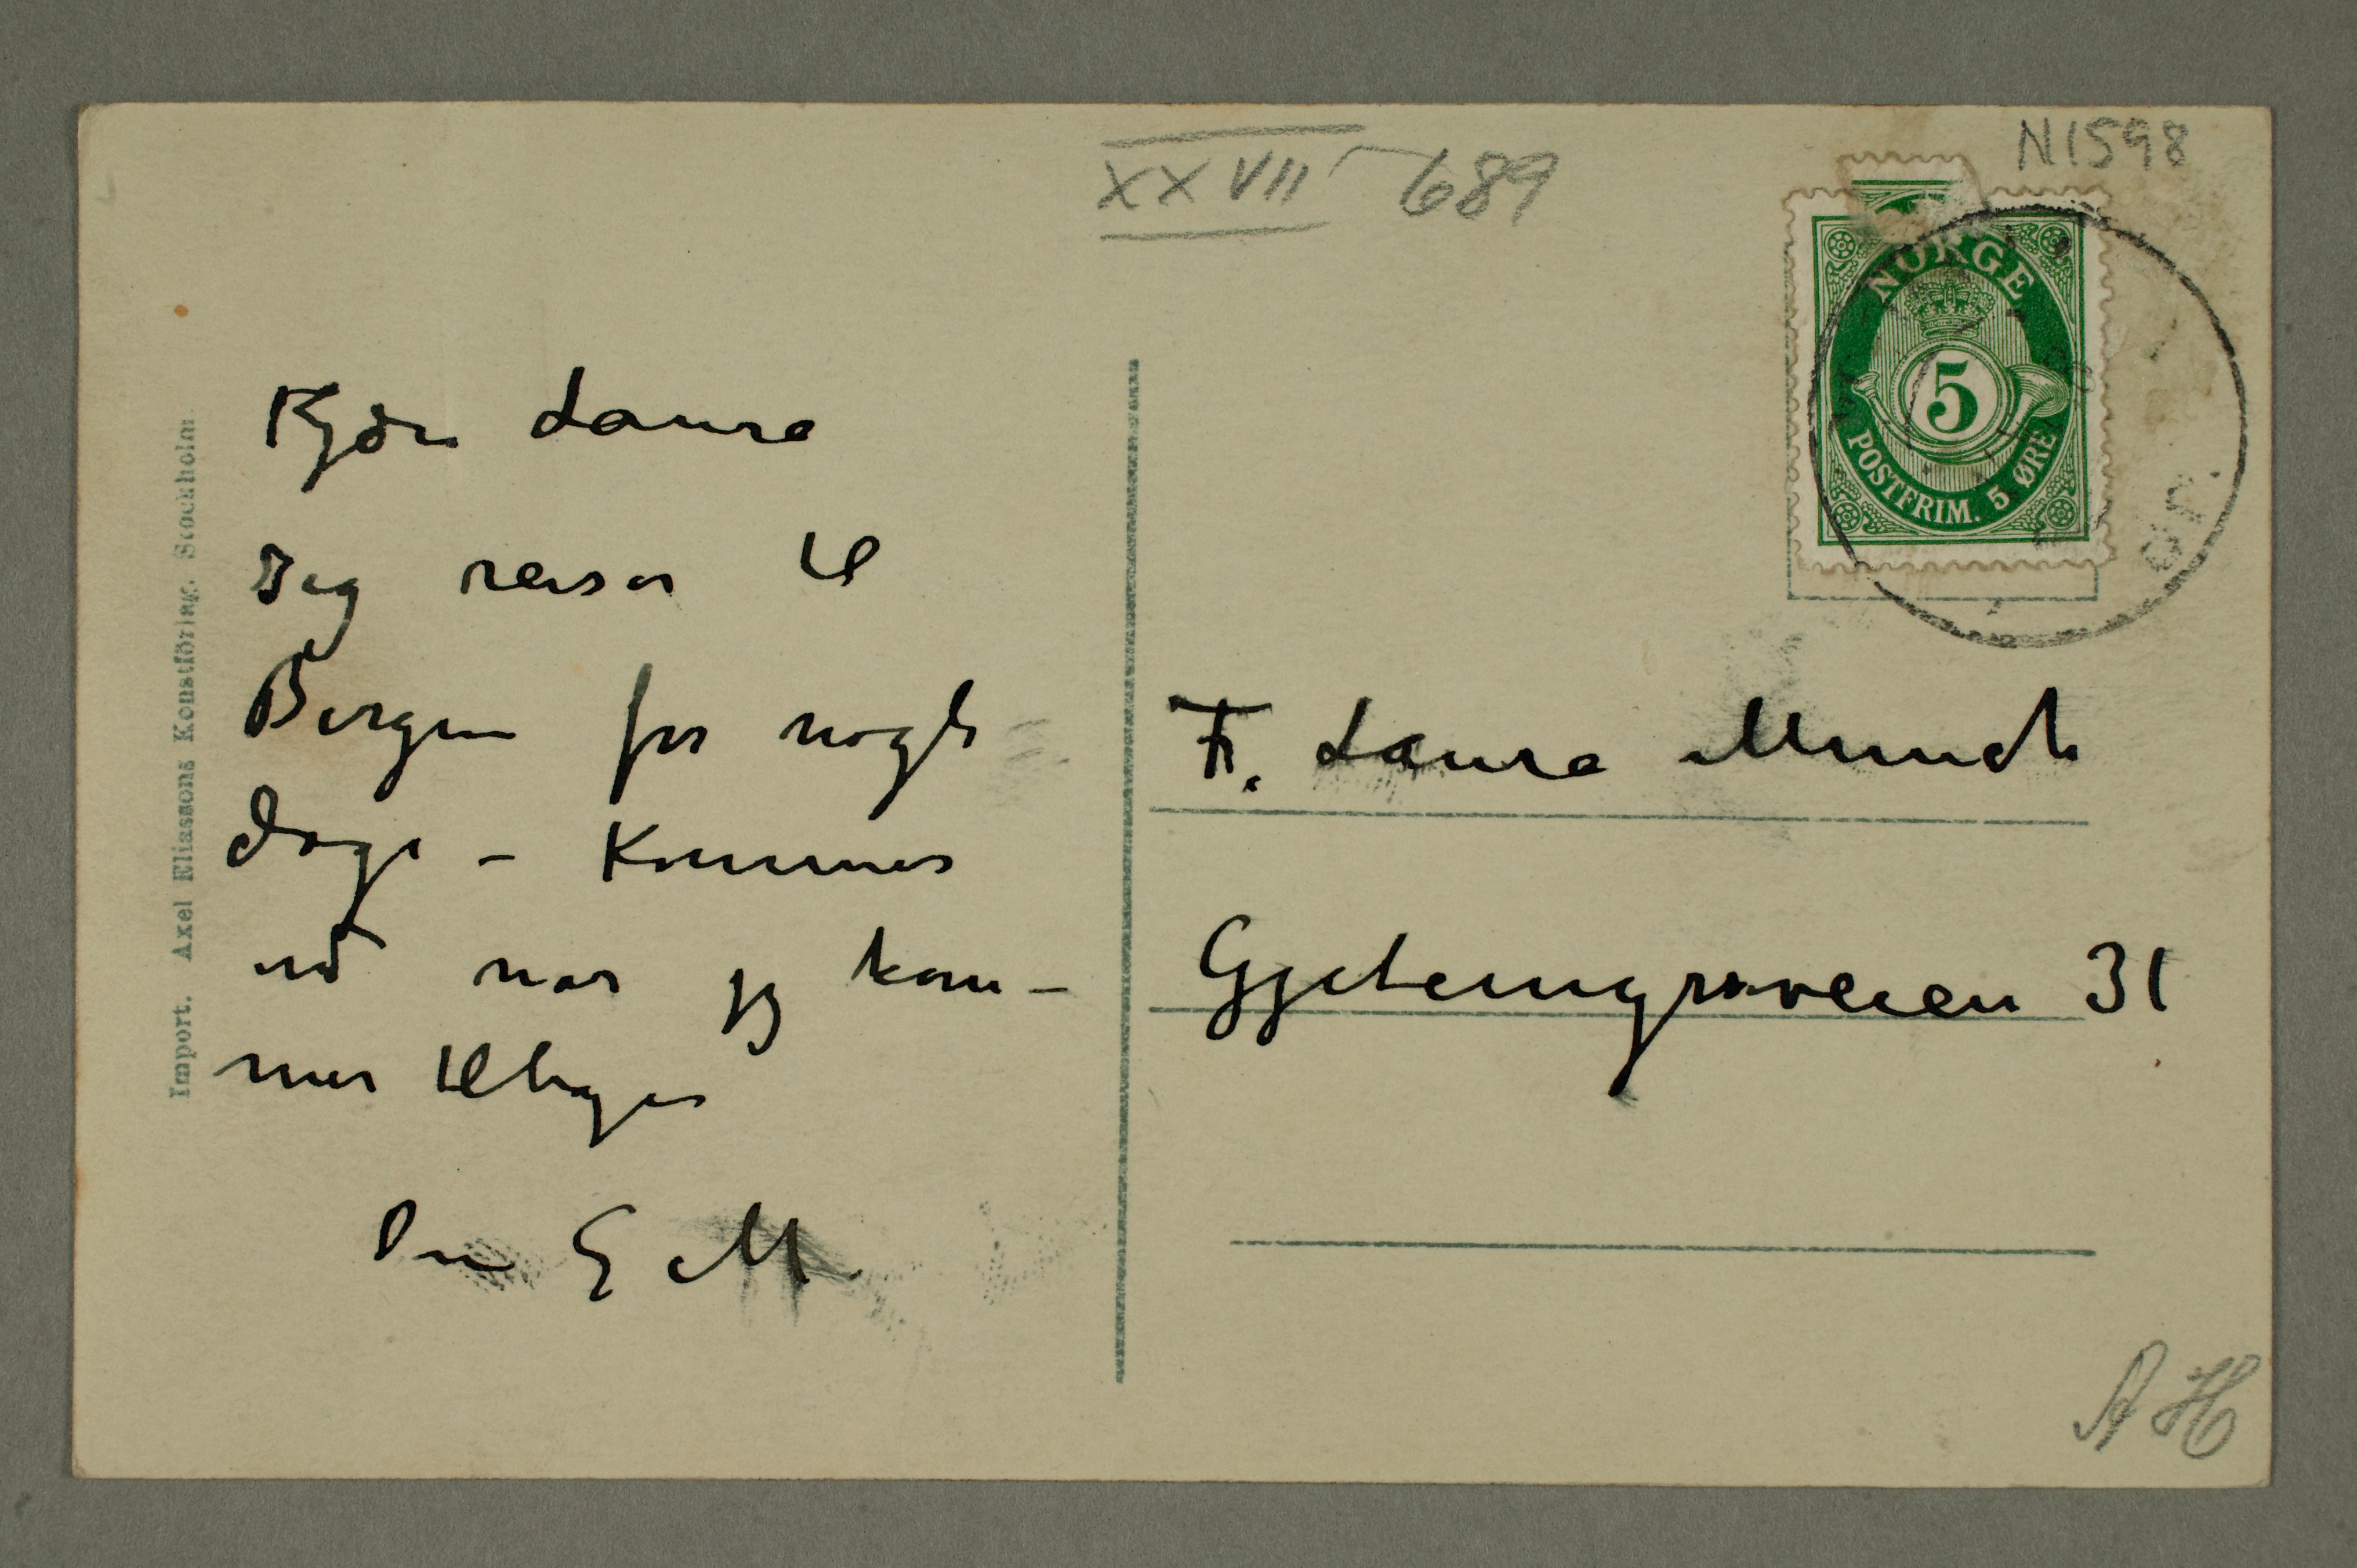 XXVII 689
N1598
NORGE
5
POSTFRIM. 5 ØRE
Import. Axel Eliassons Konstförlag. Stockholm.
Kjære Laura
Jeg reiser til
Bergen for nogle
Dage – Kommer
ud når jeg kom–
mer tilbage
Din E M.
Fr. Laura Munch
Gjetemyrsveien 31
AH